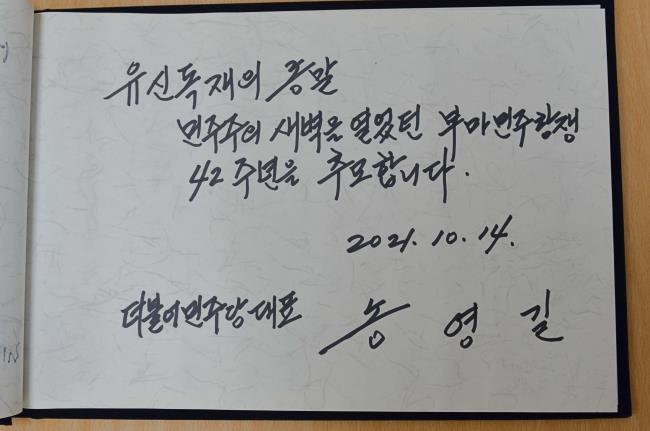 유신독재의 종말
민주주의 새벽을 열었던 부마민주항쟁
42주년을 추모합니다.
2021. 10. 14.
더불어민주당대표 송영길